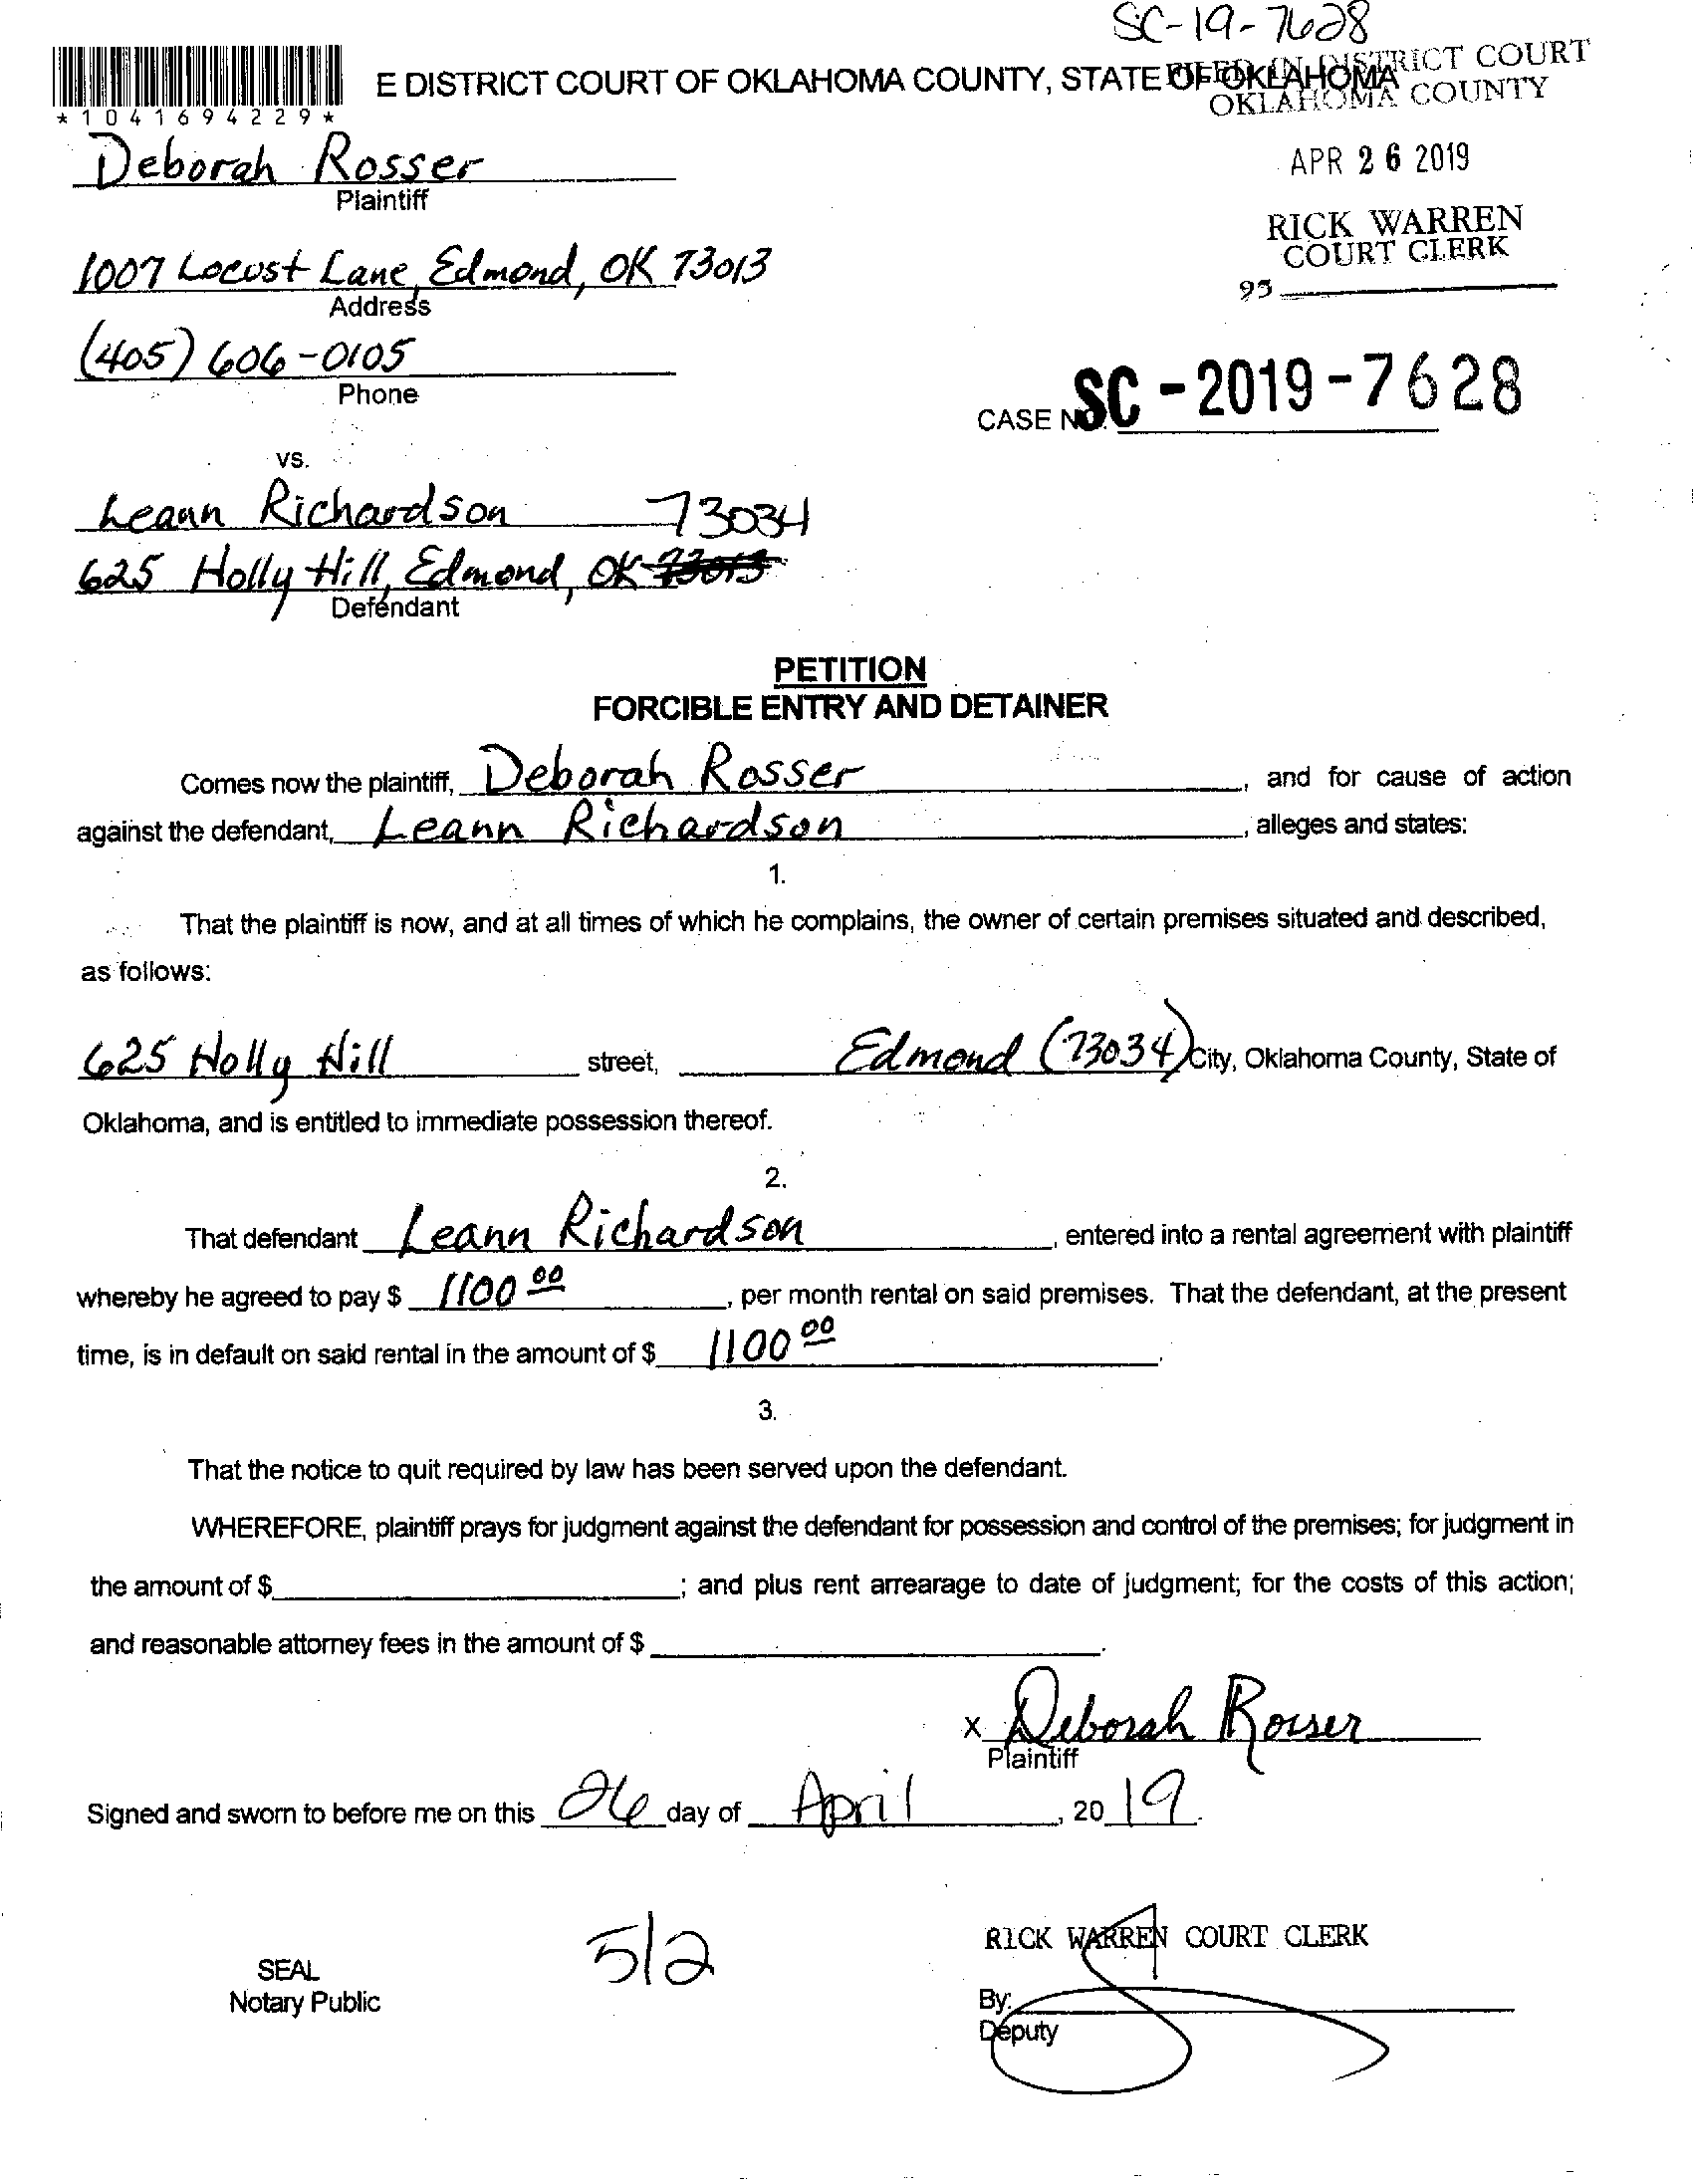 SC-19-7628
E DISTRICT COURT OF OKLAHOMA COUNTY, STATE OF OKLAHOMA
FILED IN DISTRICT COURT
OKLAHOMA COUNTY
*1041694229*
Deborah Rosser
Plaintiff
APR 26 2019
RICK WARREN
COURT CLERK
95
1007 Locust Lane, Edmond, OK 73013
Address
(405) 606-0105
Phone
CASE NO. SC-2019-7628
vs.
Leann Richardson 73034
625 Holly Hill, Edmond, OK 73013
Defendant
PETITION
FORCIBLE ENTRY AND DETAINER
Comes now the plaintiff, Deborah Rosser, and for cause of action
against the defendant, Leann Richardson, alleges and states:
1.
That the plaintiff is now, and at all times of which he complains, the owner of certain premises situated and described,
as follows:
625 Holly Hill street, Edmond (73034) City, Oklahoma County, State of
Oklahoma, and is entitled to immediate possession thereof.
2.
That defendant Leann Richardson, entered into a rental agreement with plaintiff
whereby he agreed to pay $ 1100 00, per month rental on said premises. That the defendant, at the present
time, is in default on said rental in the amount of $ 1100 00.
3.
That the notice to quit required by law has been served upon the defendant.
WHEREFORE, plaintiff prays for judgment against the defendant for possession and control of the premises; for judgment in
the amount of $ ; and plus rent arrearage to date of judgment; for the costs of this action;
and reasonable attorney fees in the amount of $ .
x Deborah Rosser
Plaintiff
Signed and sworn to before me on this 26 day of April, 2019.
5/2
RICK WARREN COURT CLERK
SEAL
Notary Public
By:
Deputy